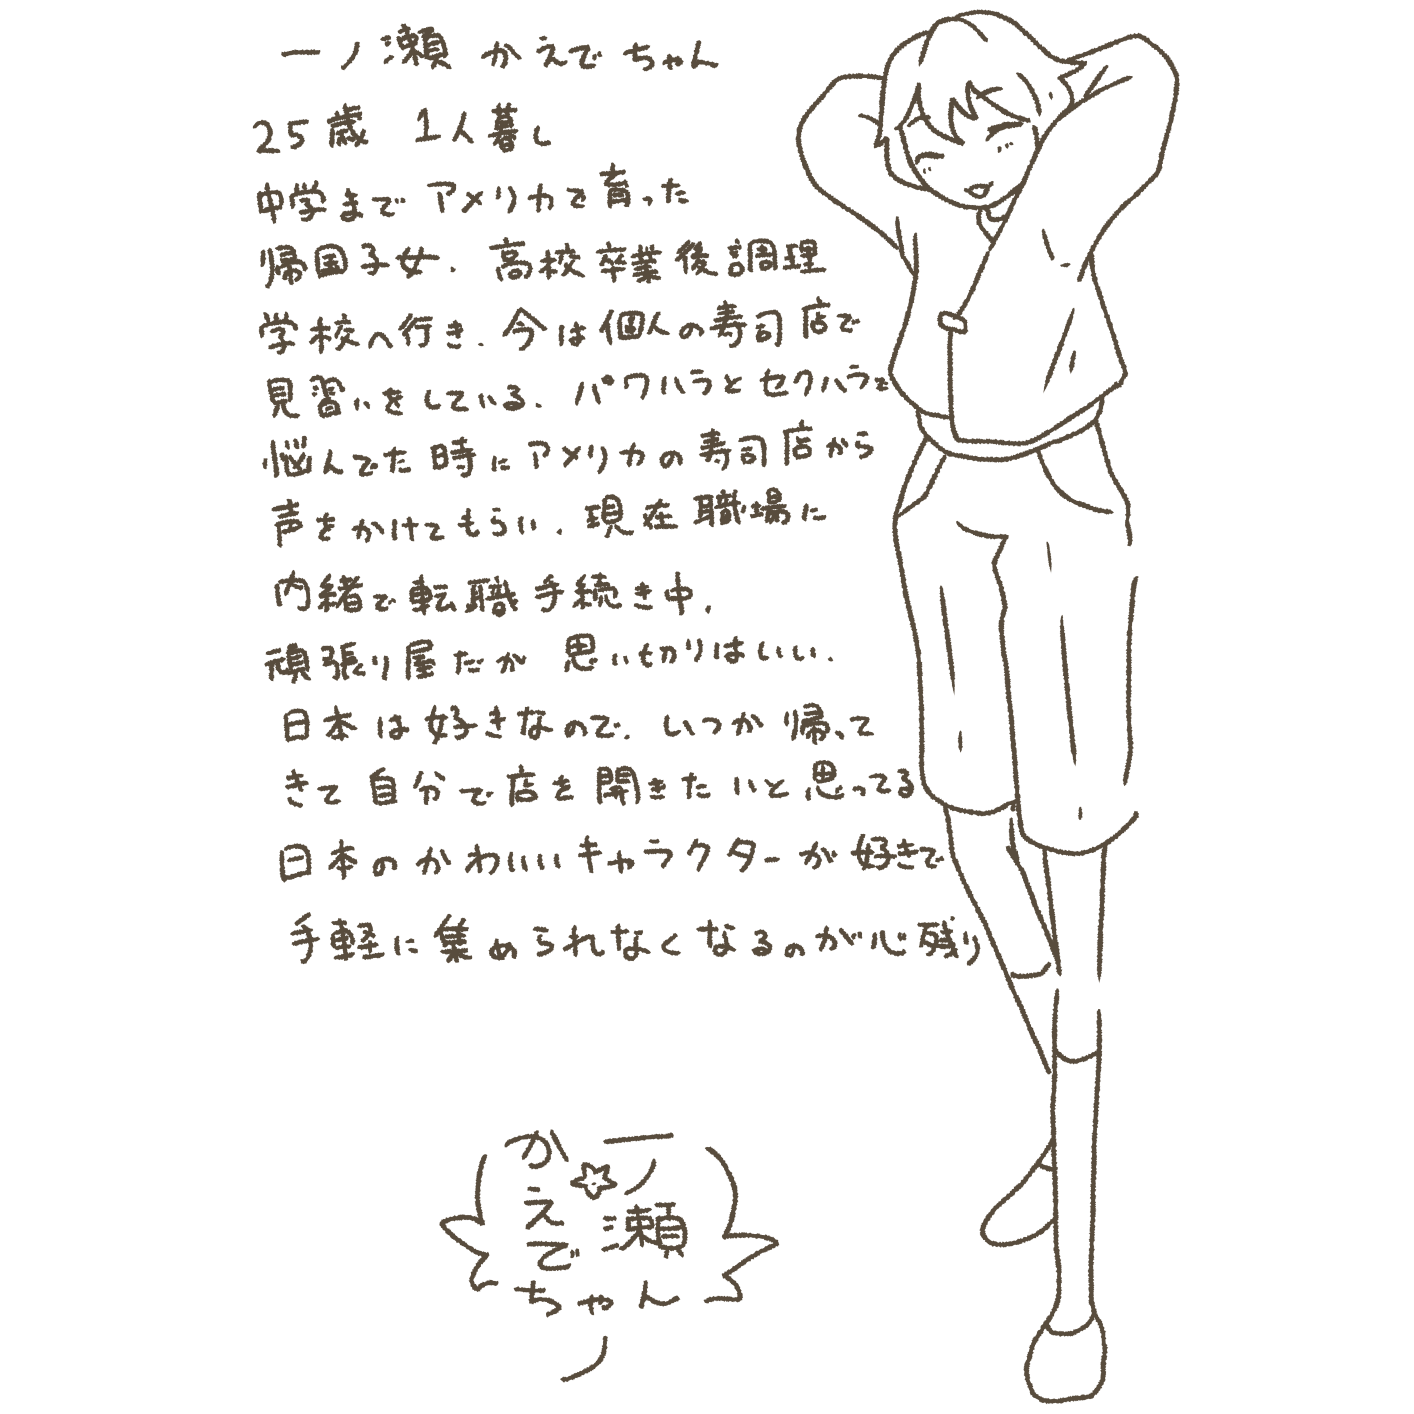 一ノ瀬 かえで ちゃん
25歳 1人暮し
中学まで アメリカで育った
帰国子女. 高校卒業後調理
学校へ行き. 今は個人の寿司店で
見習いをしている. パワハラとセクハラで
悩んでた時にアメリカの寿司店から
声をかけてもらい. 現在職場に
内緒で転職手続き中.
頑張り屋だが 思い切りはいい.
日本は好きなので. いつか帰って
きて自分で店を開きたいと思ってる
日本のかわいいキャラクターが好きで
手軽に集められなくなるのが心残り
一ノ瀬
かえで
ちゃん